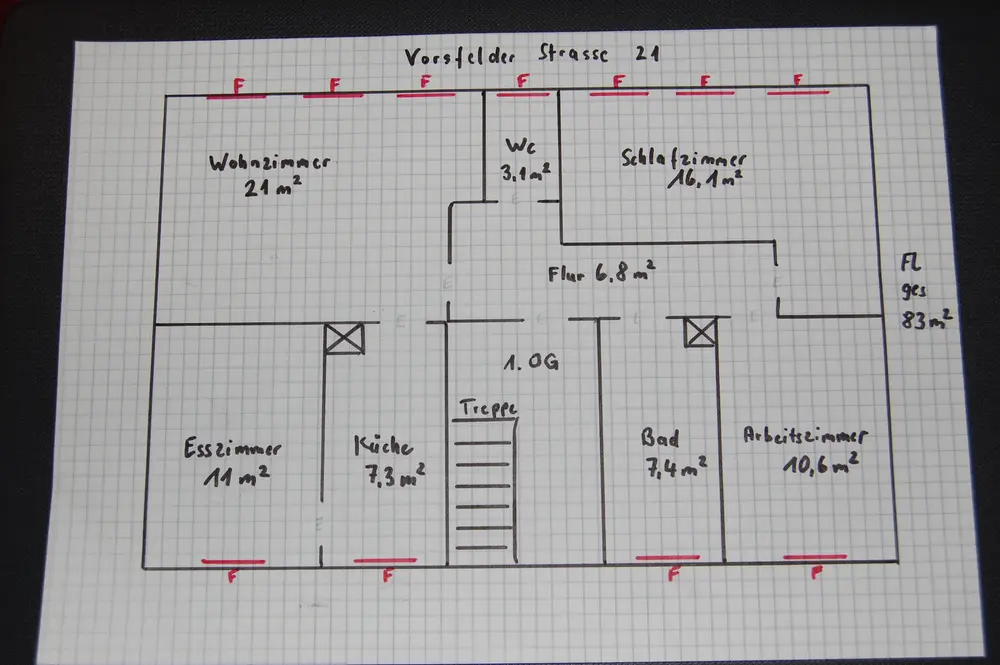 Vorsfelder Strasse 21
F F F F F F F
Wohnzimmer
21 m²
Wc
3,1 m²
Schlafzimmer
16,1 m²
E
Flur 6,8 m²
E
E
Fl
ges
83 m²
E
E
E
E
1. OG
Treppe
Esszimmer
11 m²
Küche
7,3 m²
Bad
7,4 m²
Arbeitszimmer
10,6 m²
E
F F F F